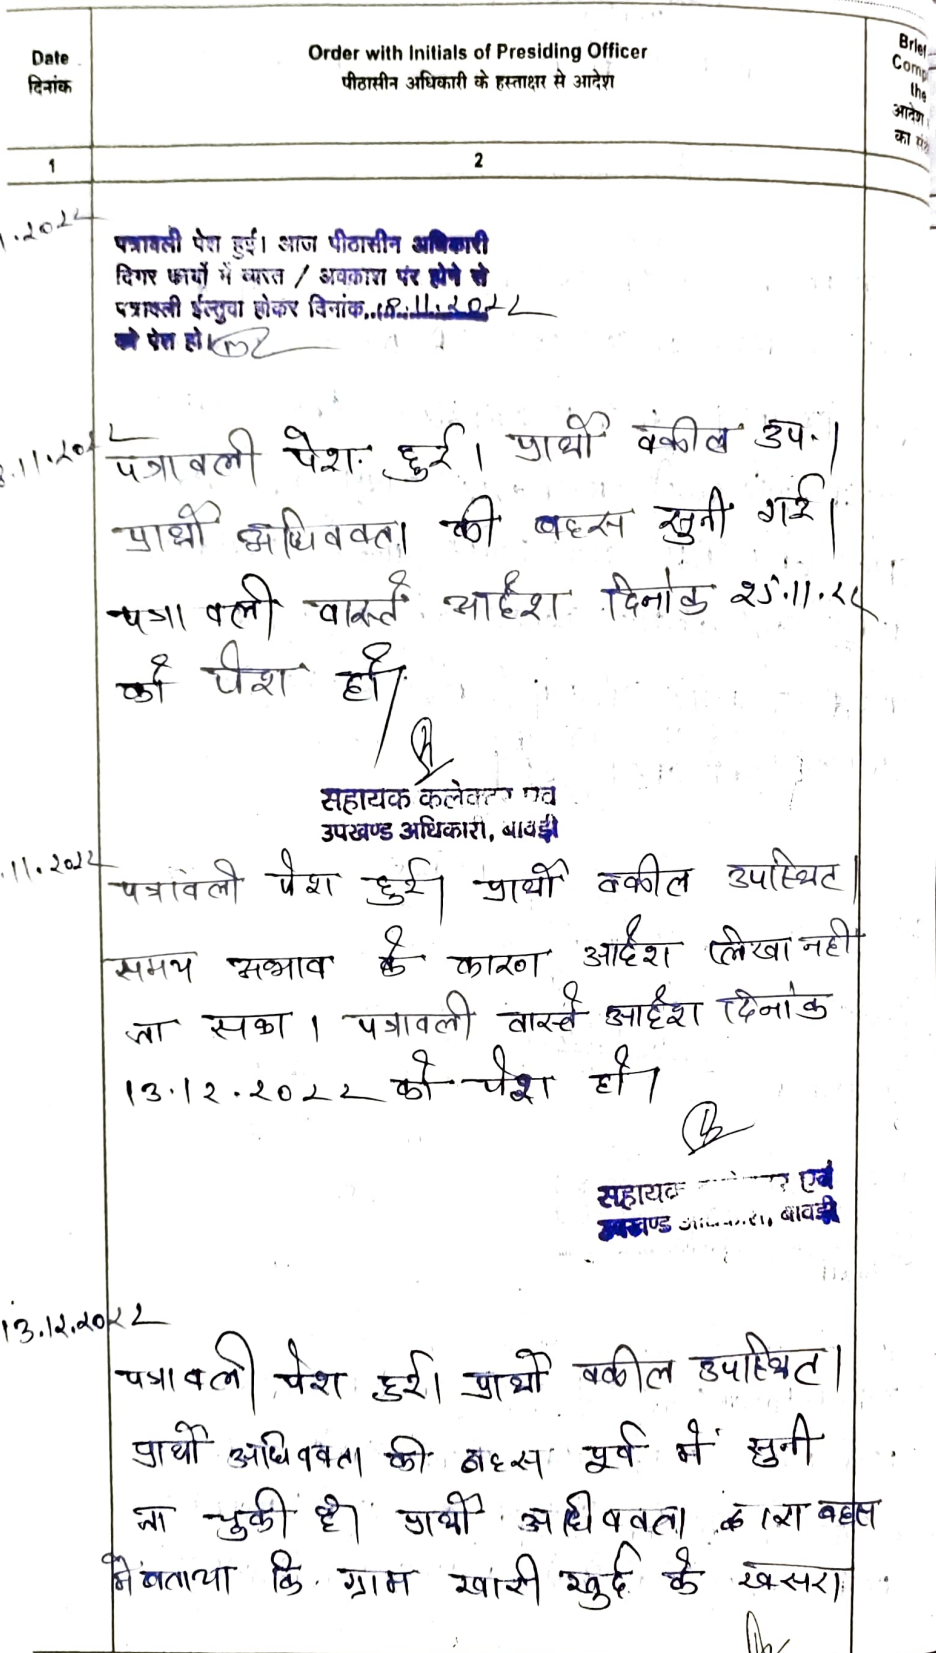 Date
दिनांक
Order with Initials of Presiding Officer
पीठासीन अधिकारी के हस्ताक्षर से आदेश
Brief
Comp
the
आदेश
का
1
2
.2022
पत्रावली पेश हुई। आज पीठासीन अधिकारी
दिगर कार्यों में व्यस्त / अवकाश पर होने से
पत्रावली ईल्तुवा होकर दिनांक..18.11.2022
को पेश हो।
.11.2022
पत्रावली पेश हुई। प्रार्थी वकील उप.।
प्रार्थी अधिवक्ता की बहस सुनी गई।
पत्रावली वास्ते आदेश दिनांक 25.11.22
को पेश हो।
सहायक कलेक्टर एवं
उपखण्ड अधिकारी, बावड़ी
.11.2022
पत्रावली पेश हुई। प्रार्थी वकील उपस्थित।
समय अभाव के कारण आदेश लिखा नही
जा सका। पत्रावली वास्ते आदेश दिनांक
13.12.2022 को पेश हो।
सहायक एवं
उपखण्ड बावड़ी
13.12.2022
पत्रावली पेश हुई। प्रार्थी वकील उपस्थित।
प्रार्थी अधिवक्ता की बहस पूर्व में सुनी
जा चुकी है। प्रार्थी अधिवक्ता द्वारा बहस
में बताया कि ग्राम खारी खुर्द के खसरा